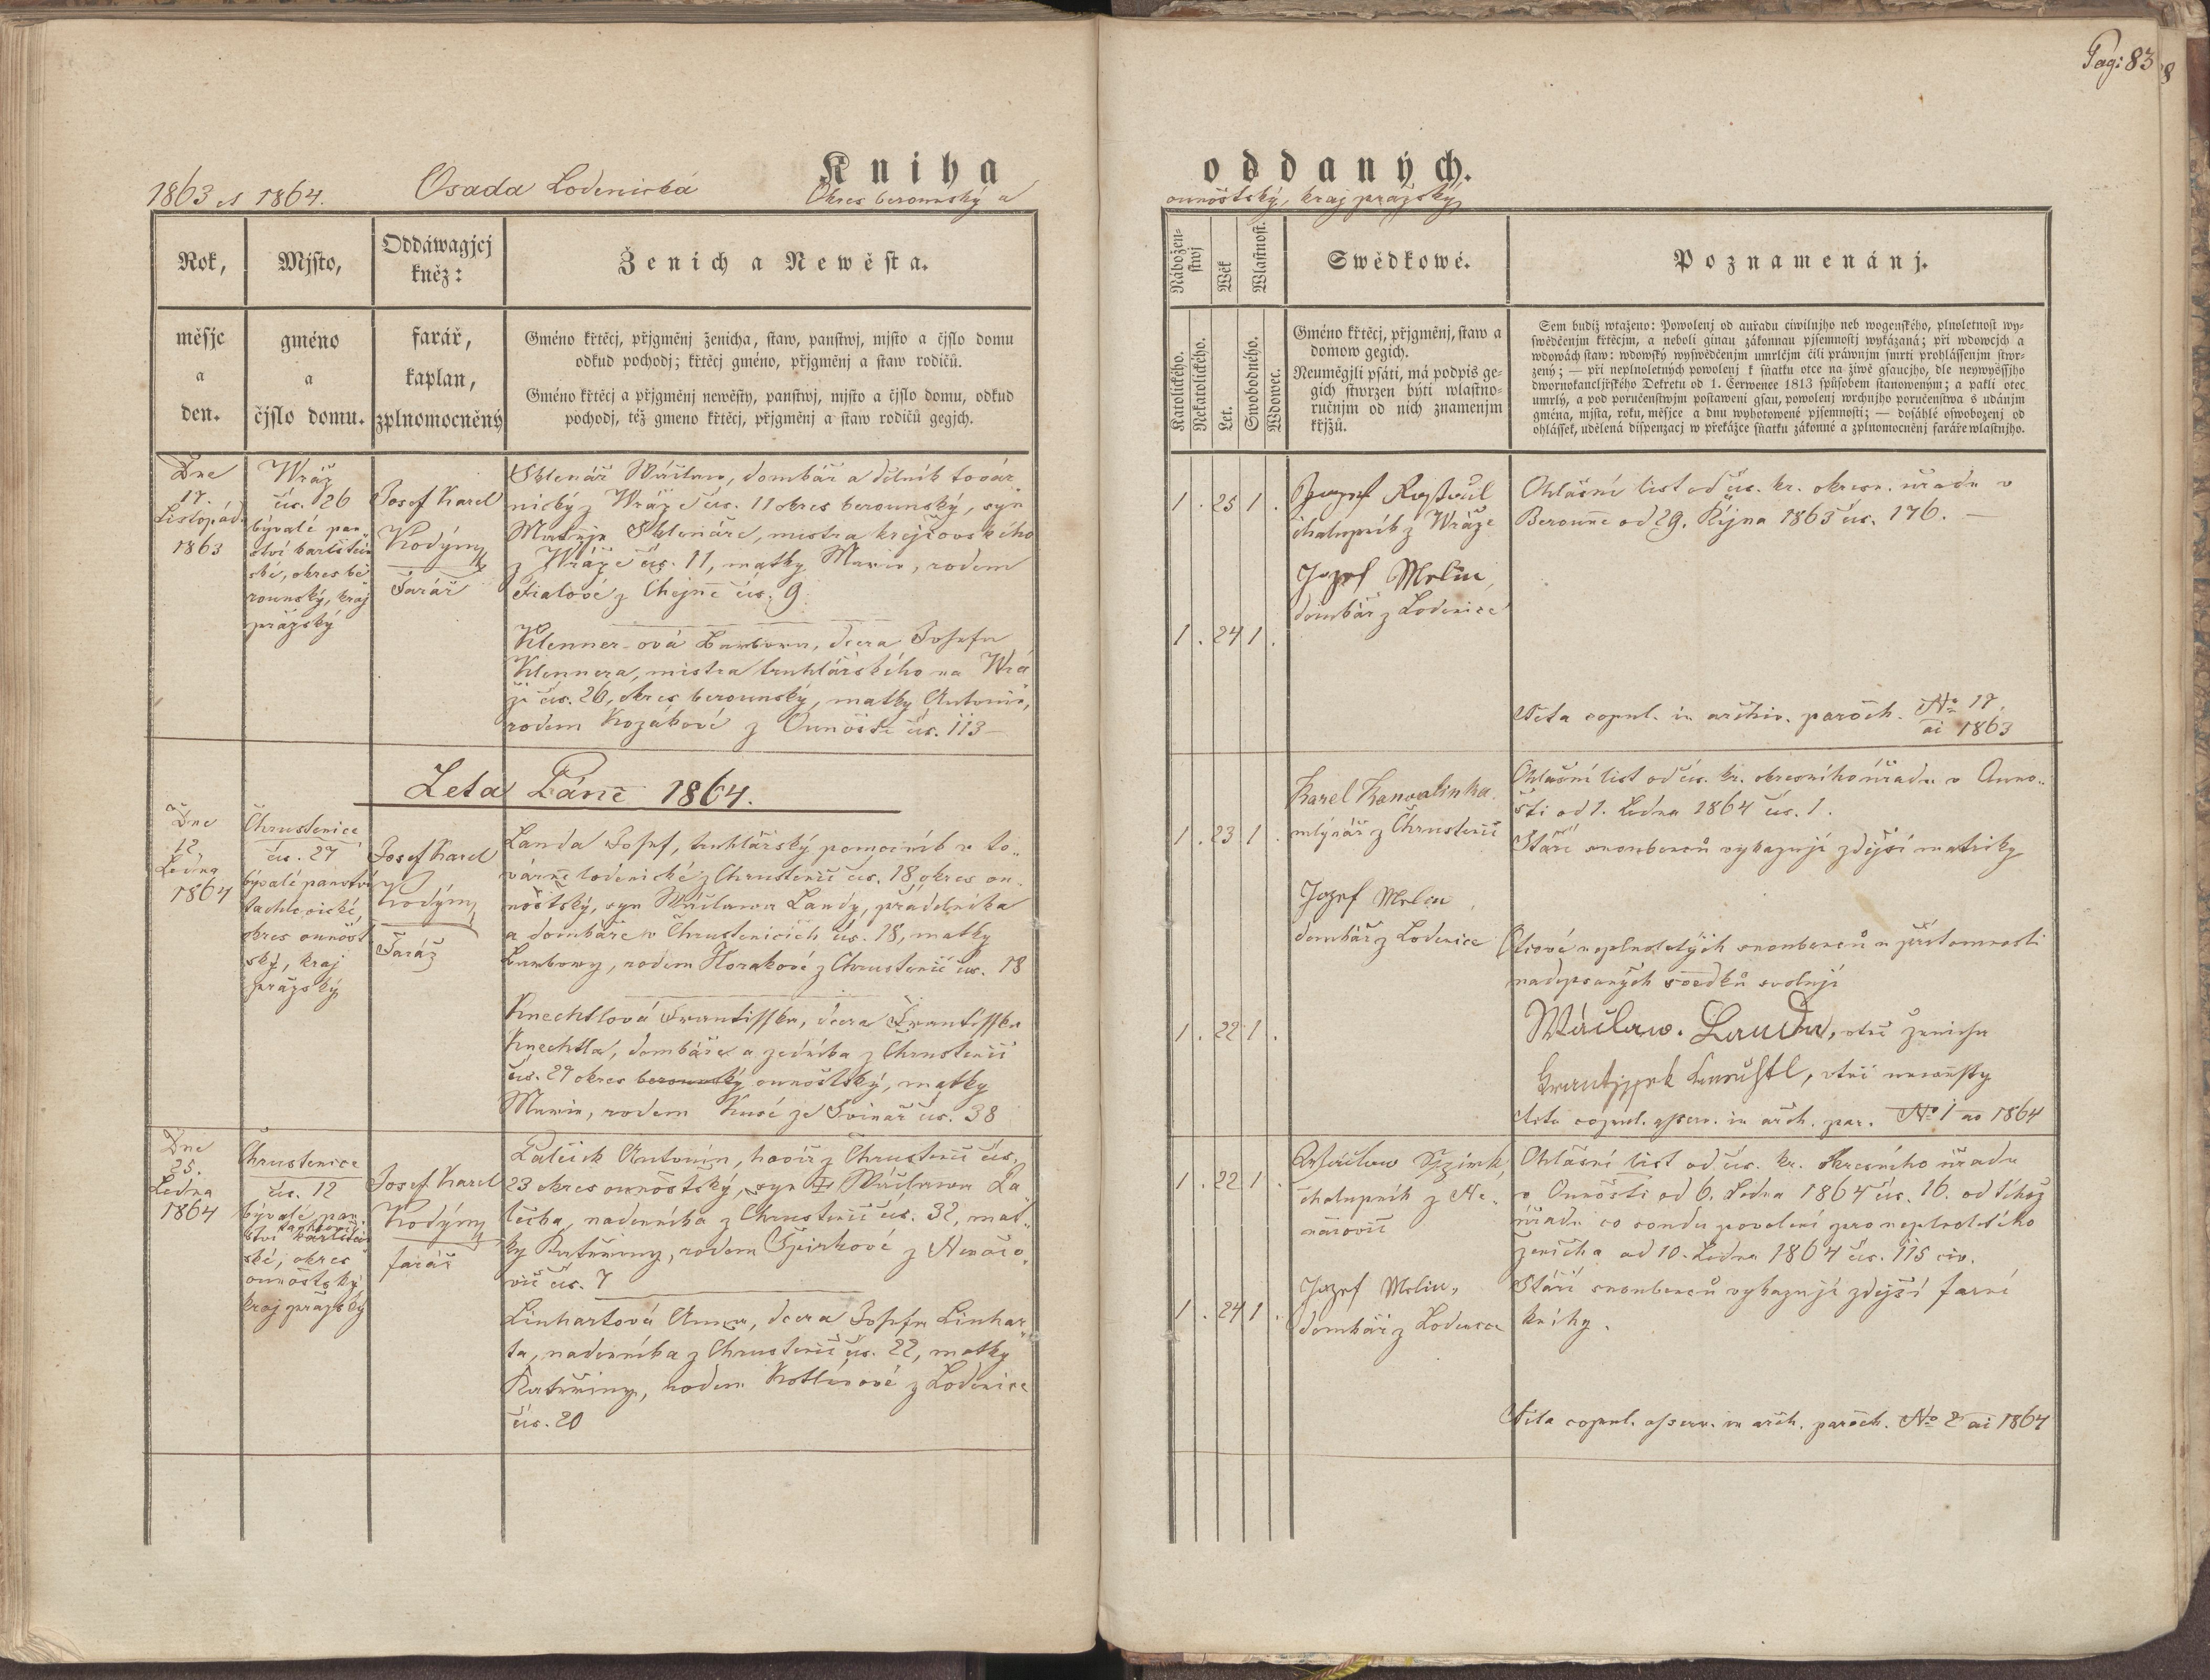 Pag: 83
Kniha oddaných.
1863 et 1864. Osada Lodenická Okres berounský a
onnoštský, kraj pražský
Rok,
měsjc
a
den.
Mjsto,
gméno
a
čjslo domu.
Oddáwagjcj
kněz:
farář,
kaplan,
zplnomocněný
Ženich a Newěsta.
Gméno křtěcj, přjgměnj ženicha, staw, panstwj, mjsto a čjslo domu
odkud pochodj; křtěcj gméno, přjgměnj a staw rodičů.
Gméno křtěcj a přjgměnj newěsty, panstwj, mjsto a čjslo domu, odkud
pochodj, též gmeno křtěcj, přjgměnj a staw rodičů gegjch.
Nábožen-
stwj
Katolického.
Nekatolického.
Wěk
Let.
Wlastnost.
Swobodného.
Wdowec.
Swědkowé.
Gméno křtěcj, přjgměnj, staw a
domow gegich.
Neuměgjlj psáti, má podpis ge-
gich stwrzen býti wlastno-
ručnjm od nich znamenjm
křjžů.
Poznamenánj.
Sem budiž wtaženo: Powolenj od auřadu ciwilnjho neb wogenského, plnoletnost wy-
swědčenjm křtěcjm, a neboli ginau zákonnau pjsemnostj wykázaná; při wdowcjch a
wdowách staw: wdowský wyswědčenjm umrlčjm čili práwnjm smrti prohlássenjm stwr-
zený; — při neplnoletných powolenj k sňatku otce na žiwě gsaucjho, dle neywyšssjho
dwornokancljřského Dekretu od 1. Čerwence 1813 spůsobem stanoweným; a pakli otec
umrlý, a pod poručenstwjm postaweni gsau, powolenj wrchnjho poručenstwa s udánjm
gména, mjsta, roku, měsjce a dnu wyhotowené pjsemnosti; — dosáhlé oswobozenj od
ohlássek, udělená dispenzacj w překážce sňatku zákonné a zplnomocněnj faráře wlastnjho.
Dne
17.
Listopád.
1863
Wráž
čís. 26
bývalé pan
ství karlštein
ské, okres be
rounský, kraj
pražský
Josef Karel
Kodým
Farář
Sklenář Wáclaw, domkář a dělník továr
nický z Wráže čís. 11 okres berounský, syn
Matěje Sklenáře, mistra krejčovského
z Wráže čís. 11, matky Marie, rodem
Fialové z Chejně čís. 9
Klenner-ová Barbora, dcera Josefa
Klennera, mistra truhlářského na Wrá
ži čís. 26, okres berounský, matky Antonie,
rodem Kozákové z Onnoště čís. 113
1 . 25 1 .
1 . 24 1 .
chalupník z Wráže
Jozef Melin,
domkář z Lodenice
Ohlašní list od čís. kr. okresn. úřadu v
Berouně od 29. Října 1863 čís. 176. —
Acta copul. in archiv. paroch. No 17.
ai 1863
Leta Páně 1864.
Dne
12.
Ledna
1864
Chrustenice
čís. 27
bývalé panství
tachlovické,
okres onnošt
ský, kraj
pražský
Josef Karel
Kodým
Farář
Landa Josef, truhlářský pomocník v to..
várně lodenické z Chrustenic čís. 18 okres on..
noštský, syn Wáclawa Landy, přádelníka
a domkáře w Chrustenicích čís. 18, matky
Barbory, rodem Horákové z Chrustenic čís. 18
Knechtlová Frantisska, dcera Frantisska
Knechtla, domkáře a zedníka z Chrustenic
čís. 27 okres berounský onnoštský, matky
Marie, rodem Kusé ze Svinař čís. 38
1 . 23 1 .
1 . 22 1 .
Karel Konvalinka
mlynář z Chrustenic
Jozef Melin,
domkář z Lodenice
Ohlašní list od čís. kr. okresního úřadu v Onno..
šti od 1. Ledna 1864 čís. 1.
Stáří snoubenců vykazují zdejší matriky
Otcové neplnoletých snoubenců u přítomnosti
nadepsaných svědků svolují
Wácław. Landa, otec ženicha
Frantjssek Knechtl, otec nevěsty
Acta copul. asserv. in arch. par. No 1 ao 1864
Dne
25.
Ledna
1864
Chrustenice
čís. 12
bývalé pan
ství tachlovic karlštein
ské, okres
onnoštský
kraj pražský
Josef Karel
Kodým
farář
Lálíček Antonín, havíř z Chrustenic čís.
23 okres onnoštský, syn Wáclawa Lá
líčka, nádenníka z Chrustenic čís. 32, mat..
ky Kateřiny, rodem Špirkové z Nenačo
vic čís. 7
Linhartová Anna, dcera Josefa Linhar
ta, nádenníka z Chrustenic čís. 22, matky
Kateřiny, rodem Kotlínové z Lodenice
čís. 20
1 . 22 1 .
1 . 24 1 .
chalupník z Ne..
načovic
Jozef Melin,
domkář z Lodenice
Ohlašní list od čís. kr. okresního úřadu
v Onnošti od 6. Ledna 1864 čís. 16. od téhož
úřadu co soudu povolení pro neplnoletého
ženicha od 10. Ledna 1864 čís. 115 civ.
Stáří snoubenců vykazují zdejší farní
knihy.
Acta copul. asserv. in arch. paroch. No 2 ai 1864